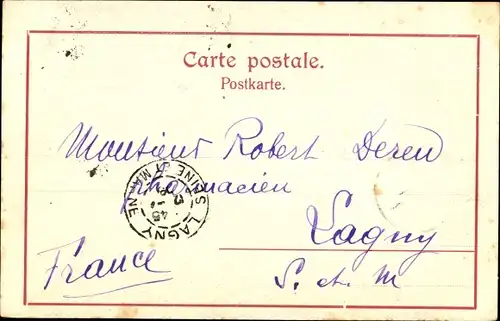 Carte postale.
Postkarte.
Monsieur Robert Deren
pharmacien
Lagny
S. et. M
France
LAGNY
SEINE ET MARNE